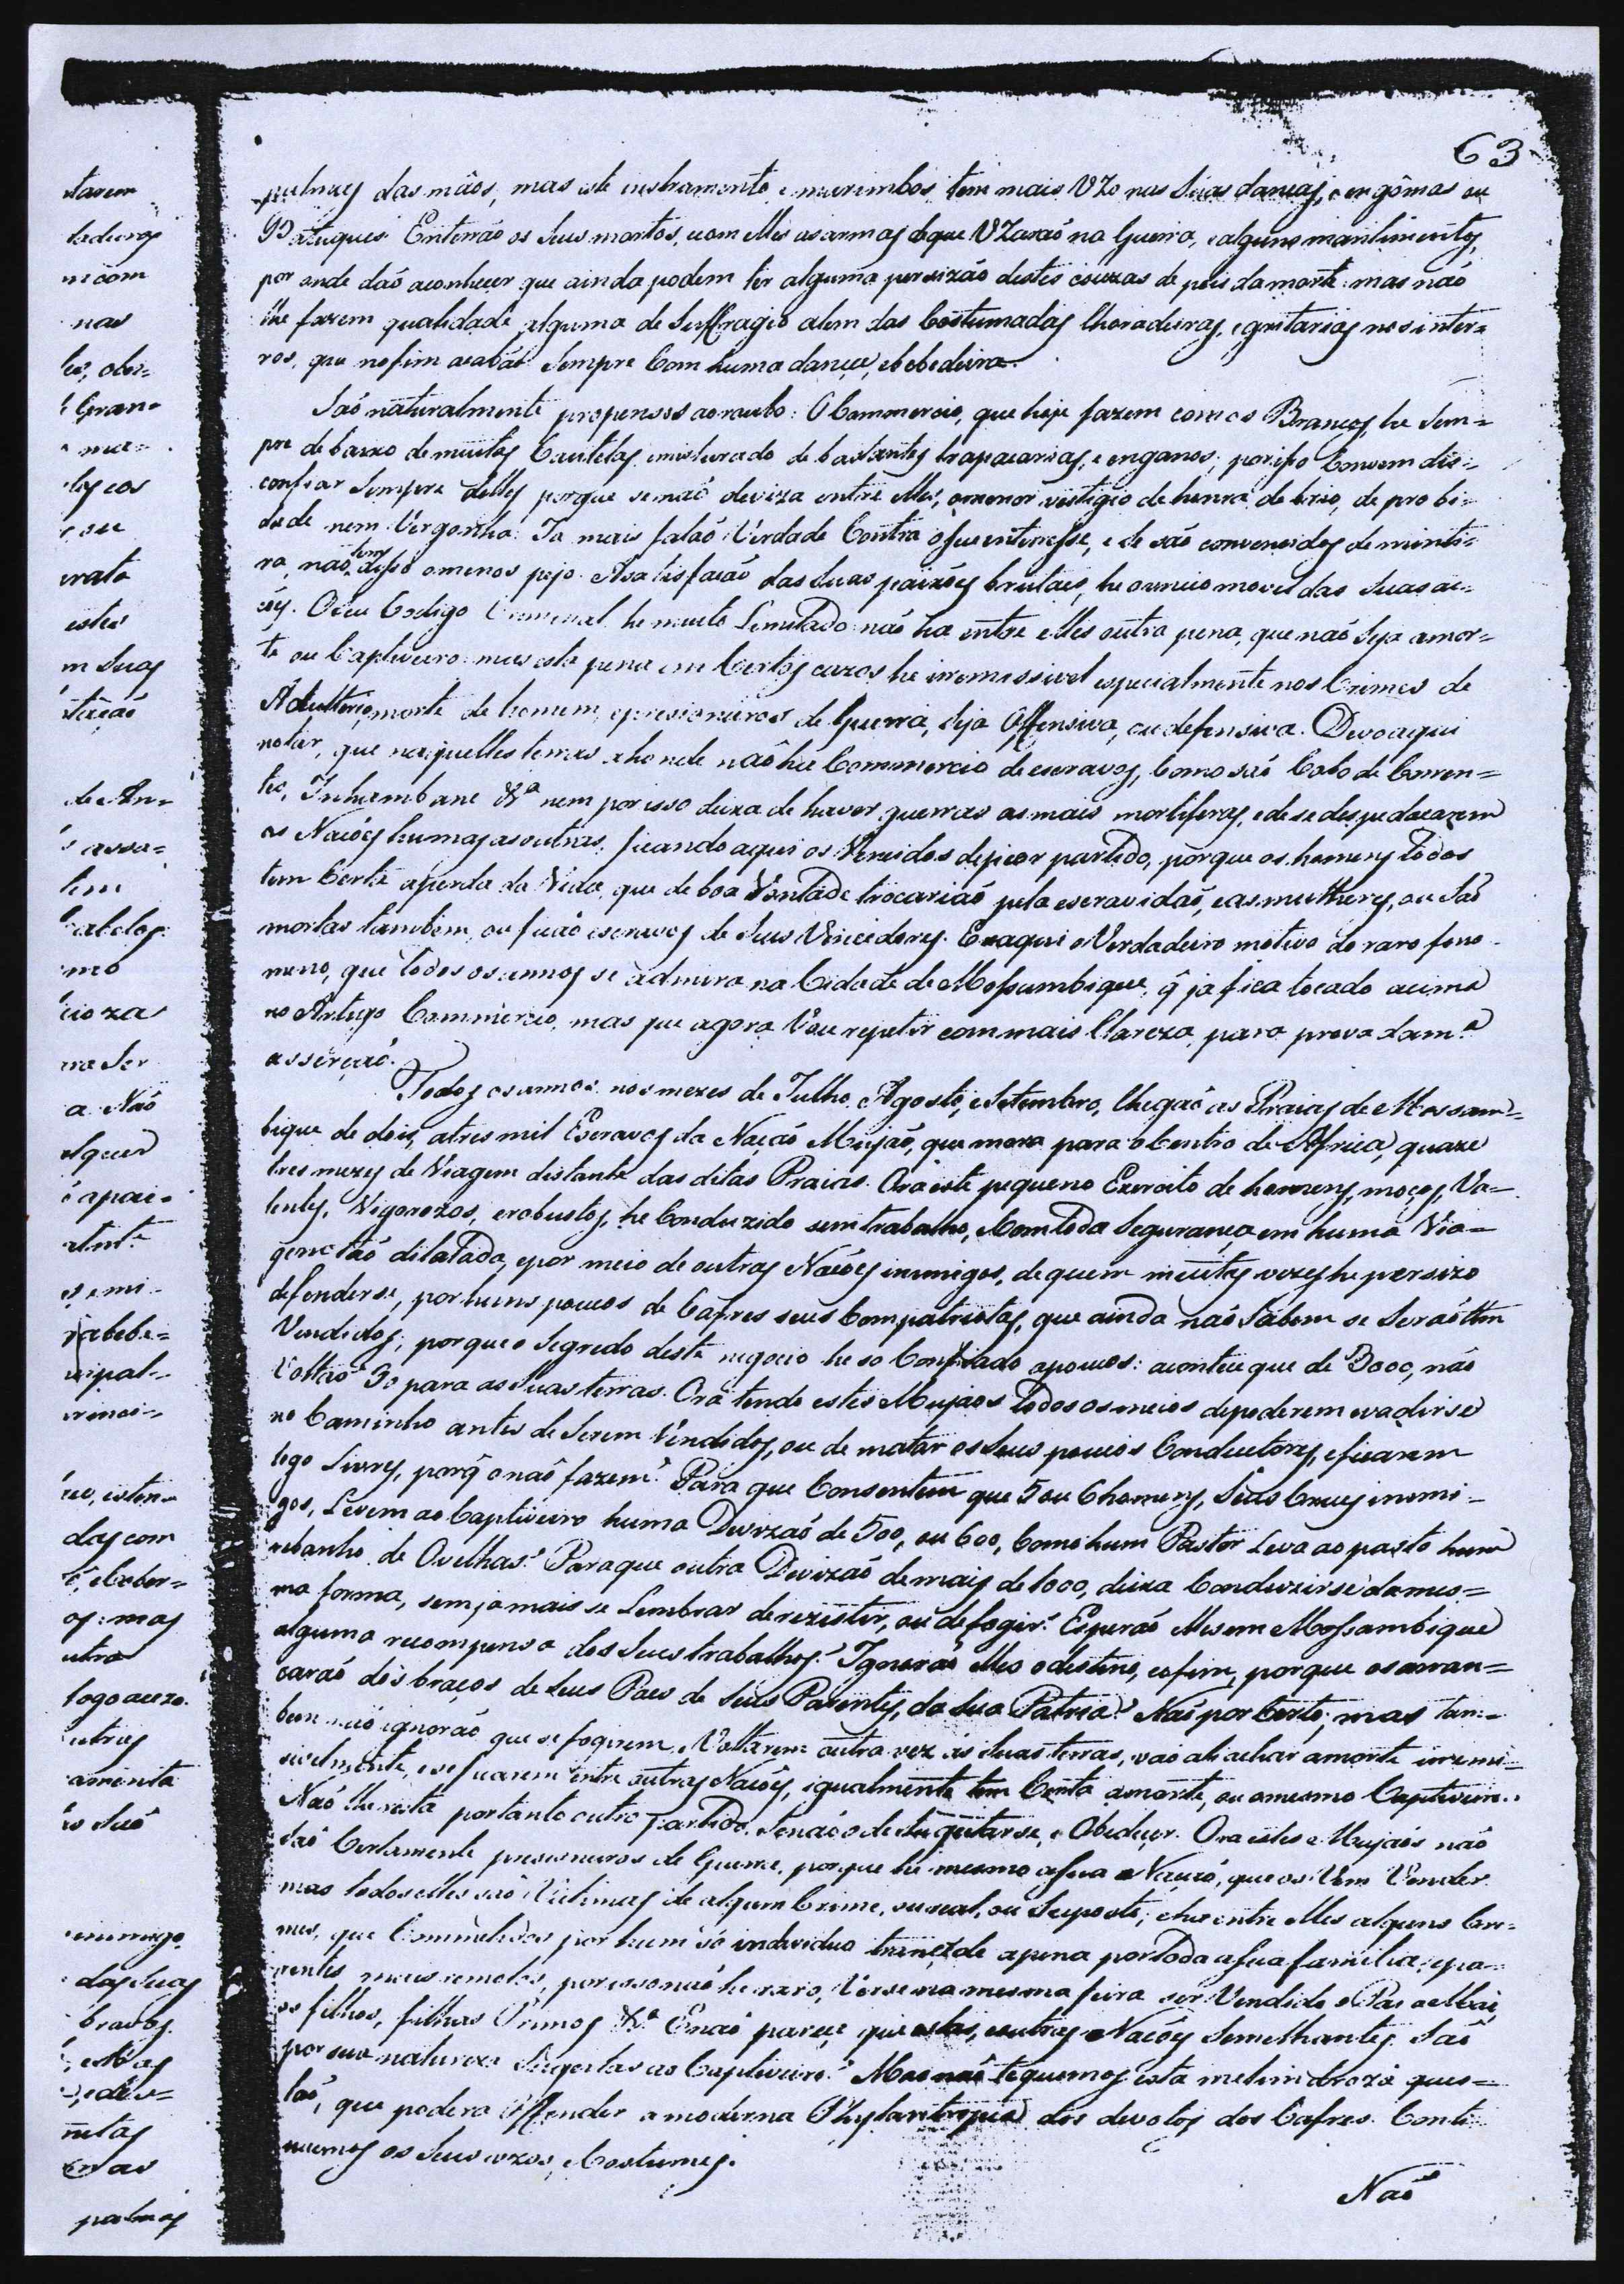 63
palmas das mãos, mas este instramento, e marimbas tem mais Uzo nas Suas danças, e engômas ou
Batuques. Enterráo os Seus mortos, e com elles as armas de que Uzaraó na Guerra, e alguns mantimentos,
por onde daó aconhecer que ainda podem ter alguma persizáo destes couzas de pois da morte: mas naó
lhe fazem qualidade alguma de Suffragio alem das Costumadas Choradeiras, e gritarias nos inter=
ros, que no fim acabáo Sempre Com huma dança, e bebedeira.
Saó naturalmente propensos ao roubo: O Commercio, que hoje fazem com os Brancos, he Sem=
pre de baixo de muitas Cautelas, e misturado de bastantes trapacarias, e enganos; por iso Convem dis=
confiar Sempre delles, porque se naó deviza entre elles, o menor vestigio de honra, de brio, de probi=
dade nem Vergonha. Ja mais falaó Verdade Contra o Seu interresse, e se são convencidos de menti=
ra, naó tem disso o menos pejo. A satisfaçaó das Suas paixóes brutaes, he o unico movel das Suas ac=
çóes. O seu Codigo Criminal he muito Limitado: naó ha entre elles outra pena, que naó Seja a mor=
te ou Captiveiro: mas esta pena em Certos cazos he irremissivel especialmente nos Crimes de
Adulterio, morte de homem, e prisioneiros de Guerra, Seja Offensiva, ou defensiva. Devo aqui
notar, que naquelles terras ahonde naó há Commercio de escravos, Como saó Cabo de Corren=
tes, Inhambane &ª nem por isso deixa de haver guerras as mais mortiferas, e de se despedacarem
as Naçóes humas as outras, ficando aqui os Vencidos de pior partido, porque os homens todos
tem Certa a perda da Vida, que de boa Vontade trocariaó pela escravidaó, e as mulheres, ou Saó
mortas tambem, ou ficaó escravas de Seus Vencedores. Exaqui o Verdadeiro motivo do raro feno=
meno, que todos os annos se admira na Cidade de Mossambique, q̃ ja fica tocado acima
no Artigo Commercio, mas que agora Vou repetir com mais Clareza, para prova da m.ª
asserçaó.
Todos os annos nos mezes de Julho, Agosto, e Setembro, Chegaó as Praias de Mossam=
bique de dois, a tres mil Escravos da Naçaó Mujaó, que mora para o Centro de Africa, quaze
tres mezes de Viagem distante das ditas Praias. Ora este pequeno Exercito de homens, moços, Va=
lentes, Vigorozos, e robustos, he Conduzido sem trabalho, e Com toda Segurança em huma Via=
gem taó dilatada, e por meio de outras Naçóes inimigas, de quem muitas vezes he persizo
defenderse, por huns poucos de Cafres seus Compatriotas, que ainda naó Sabem se Seraó tbm
Vendidos; porque o Segredo deste negocio he so Confiado a poucos: acontece que de 3000, náo
Voltaó 30 para as Suas terras. Ora tendo estes Mujaos todos os meios de poderem evadirse
no Caminho antes de Serem Vendidos, ou de matar os Seus poucos Conductores, e ficarem
logo Livres, porq̃ o naó fazem? Para que Consentem que 5 ou 6 homens, Seus Crueis inimi=
gos, Levem ao Captiveiro huma Divizaó de 500, ou 600, Como hum Pastor Leva ao pasto hum
rebanho de Ovelhas? Para que outra Divizaó de mais de 1000, deixa Conduzirse da mes=
ma forma, sem ja mais se Lembrar de rezestir, ou de fogir? Esperaó elles em Mossambique
alguma recompensa dos Seus trabalhos? Ignoraó elles o destino, e o fim, porque os arran=
caraó dos braços de Seus Paes de Seus Parentes, da Sua Patria? Naó por Certo; mas tam=
bem naó ignoraó que se fogirem, e Voltarem outra vez ás Suas terras, vaó ahi achar a morte irremis=
sivelmente, e se ficarem entre outras Naçóes, igualmente tem Certa a morte, ou o mesmo Captiveiro.
Naó lhe resta portanto outro partido, Senaó o de Sugeitarse, e Obedecer. Ora estes Mujaós naó
Saó Certamente prisioneiros de Guerra, porque he mesmo a Sua Naçaó, que os Vem Vender
mas todos elles saó Victimas de algum Crime, ou real, ou Suposto; e ha entre elles alguns Cri=
mes, que Commetidos por hum só individuo transcede a pena por toda a Sua familia, e pa=
rentes mais remotos, por isso naó he raro, Verse na mesma feira ser Vendido o Pai a Mai,
os filhos, filhas Primos &ª E naó parece que estas, e outras Naçóes Semelhantes Saó
por sua natureza Sugeitas ao Captiveiro? Mas naó toquemos esta melindroza ques=
taó, que podera Offender a moderna Phylantropia dos devotos dos Cafres. Conti
nuemos os Seus uzos, e Costumes.
Naó